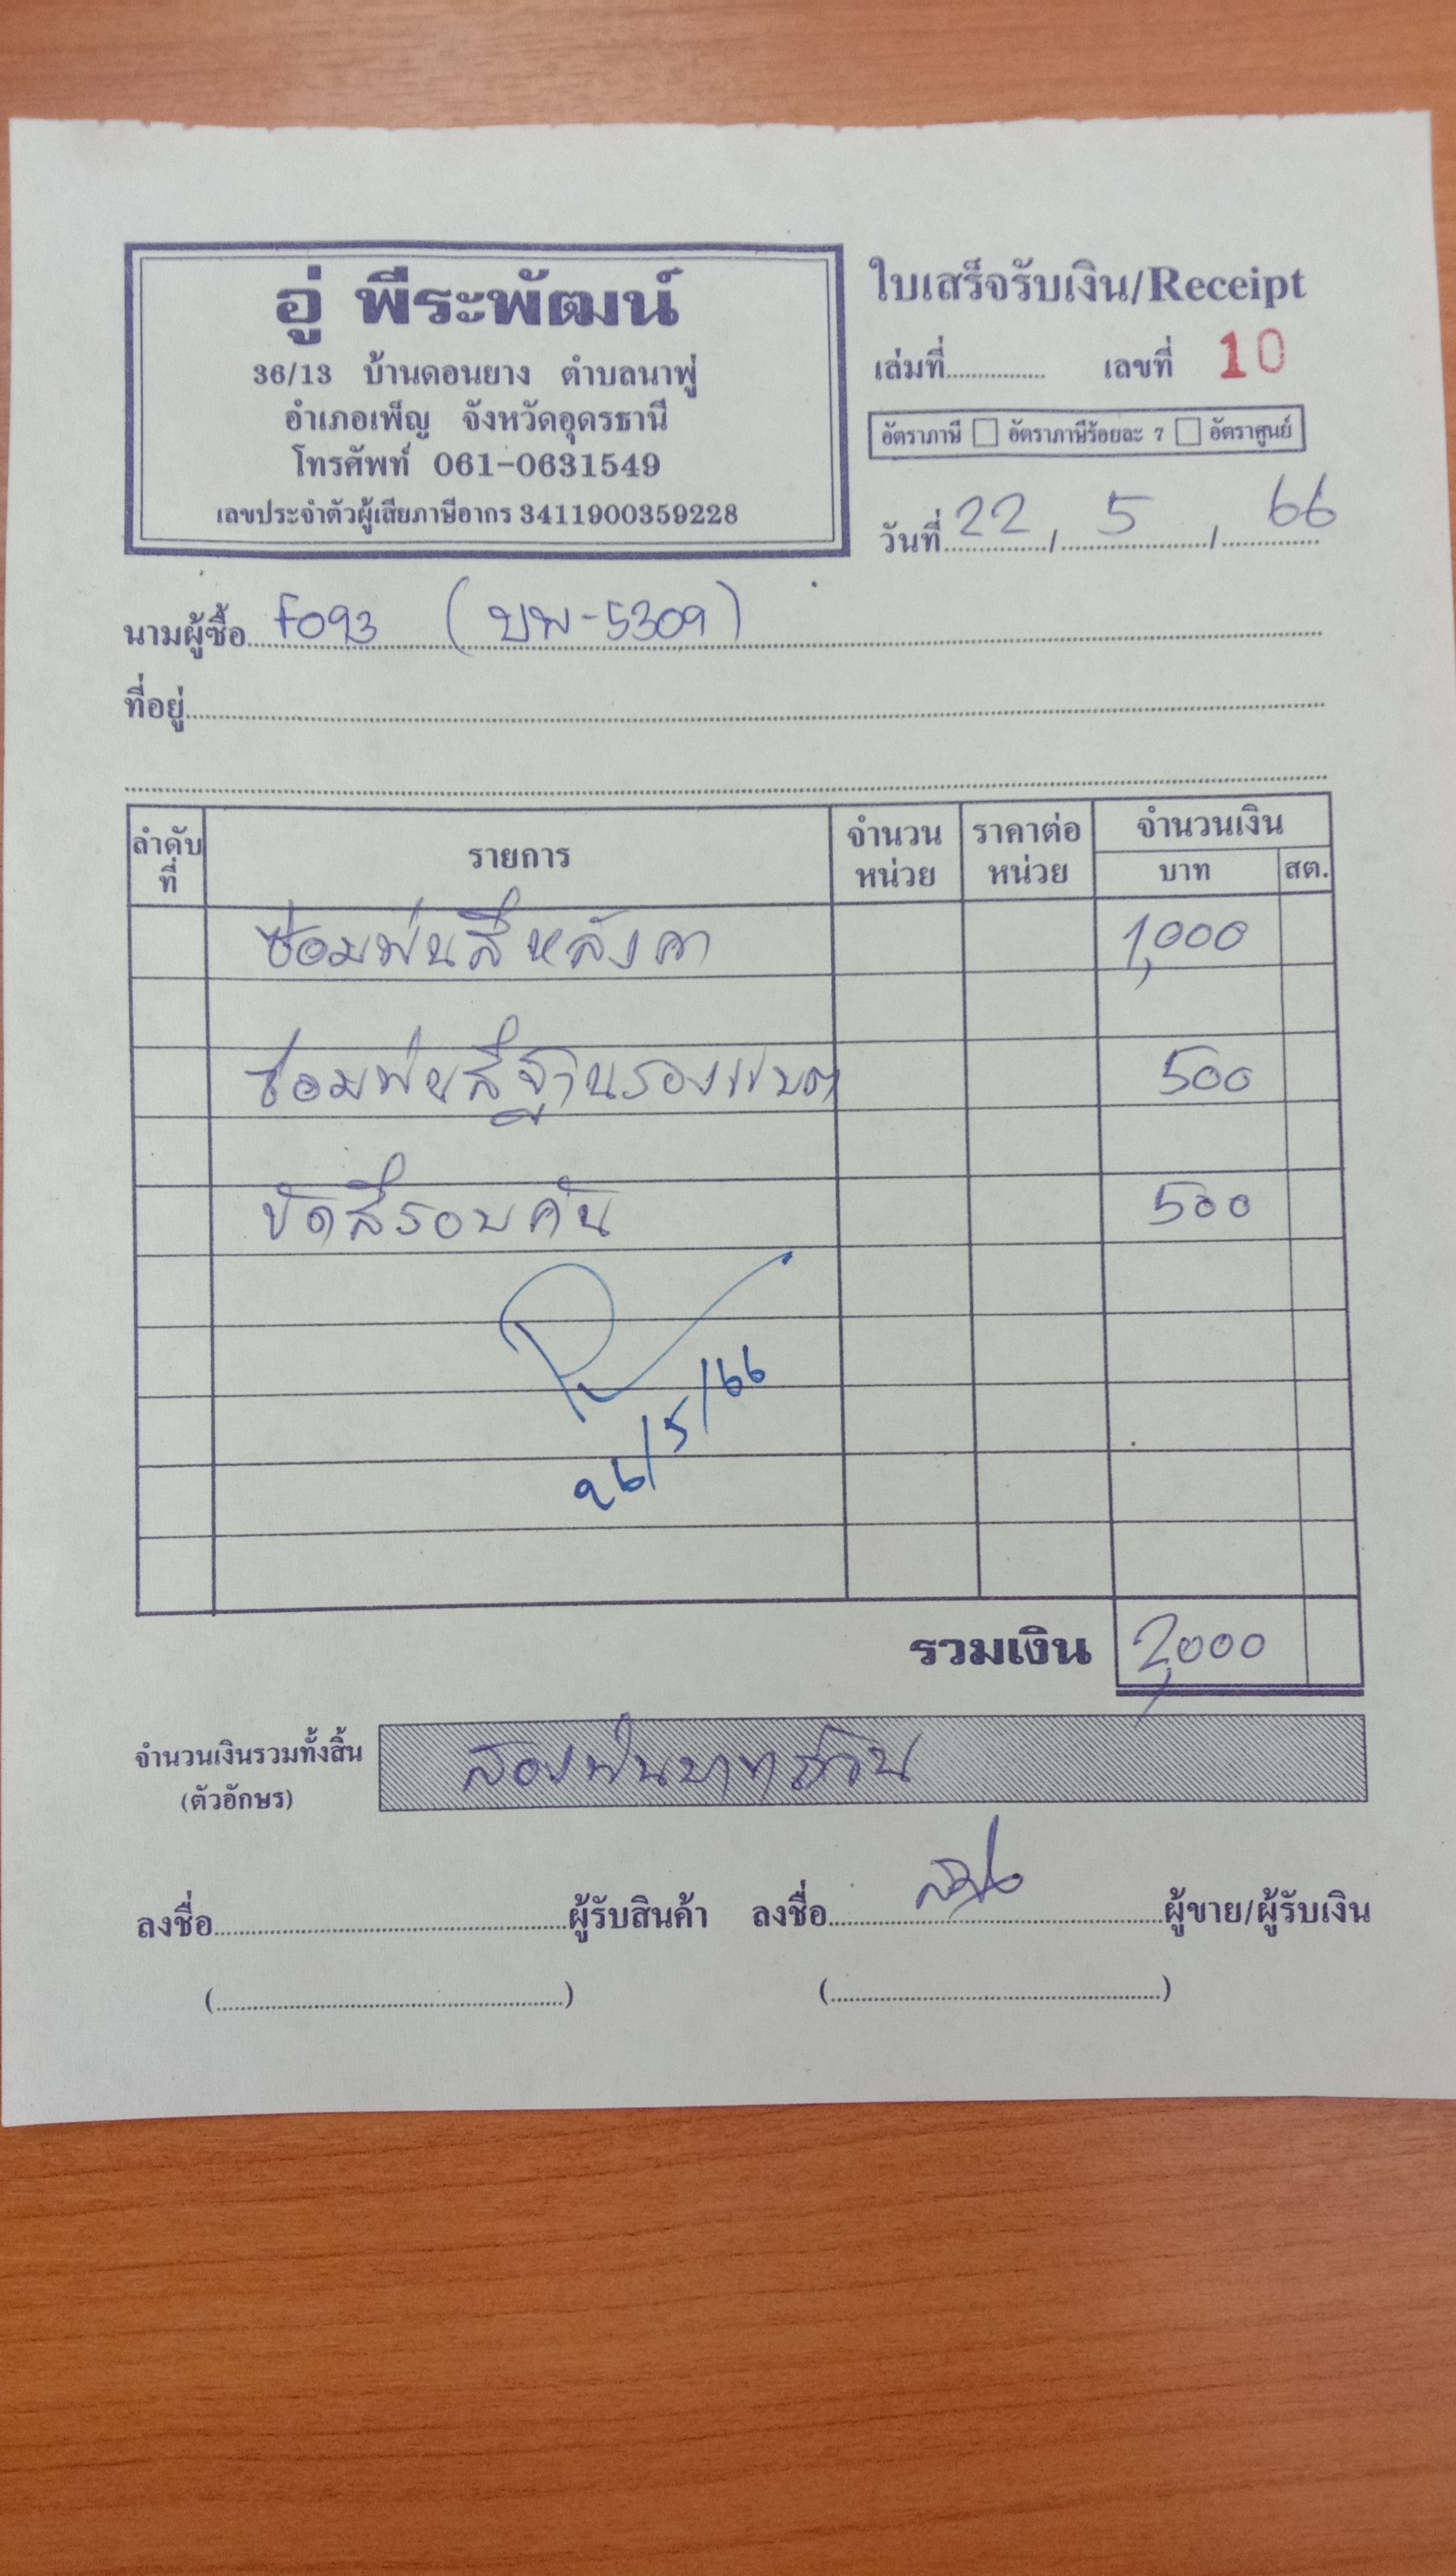 อู่ พีระพัฒน์
36/13 บ้านดอนยาง ตำบลนาพู่
อำเภอเพ็ญ จังหวัดอุดรธานี
โทรศัพท์ 061-0631549
เลขประจำตัวผู้เสียภาษีอากร 3411900359228
ใบเสร็จรับเงิน/Receipt
เล่มที่ เลขที่ 10
อัตราภาษี อัตราภาษีร้อยละ 7 อัตราศูนย์
วันที่ 22 / 5 / 66
นามผู้ซื้อ F093 (บพ-5309)
ที่อยู่
ลำดับที่ รายการ จำนวนหน่วย ราคาต่อหน่วย จำนวนเงิน
บาท สต.
ซ่อมพ่นสีหลังคา 1,000
ซ่อมพ่นสีฐานรองแบต 500
ขัดสีรอบคัน 500
26/5/66
รวมเงิน 2,000
จำนวนเงินรวมทั้งสิ้น สองพันบาทถ้วน
(ตัวอักษร)
ลงชื่อ ผู้รับสินค้า ลงชื่อ ผู้ขาย/ผู้รับเงิน